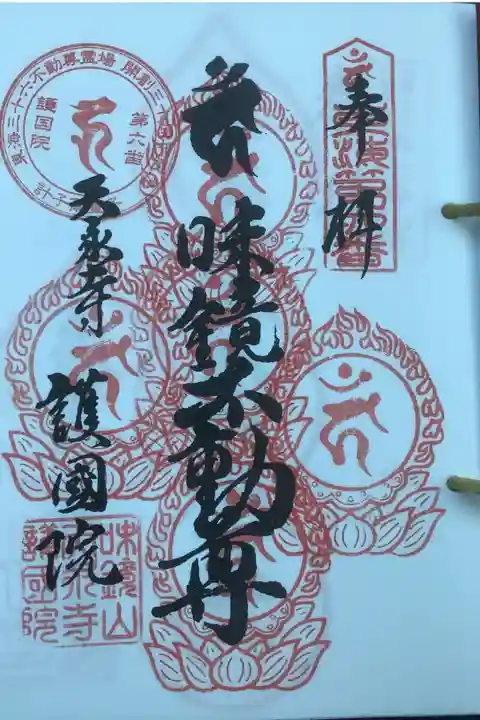 奉拝
味鏡不動尊
天永寺 護國院
東海三十六不動尊霊場 開創三十
第六番
護国院
味鏡山
天永寺
護國院